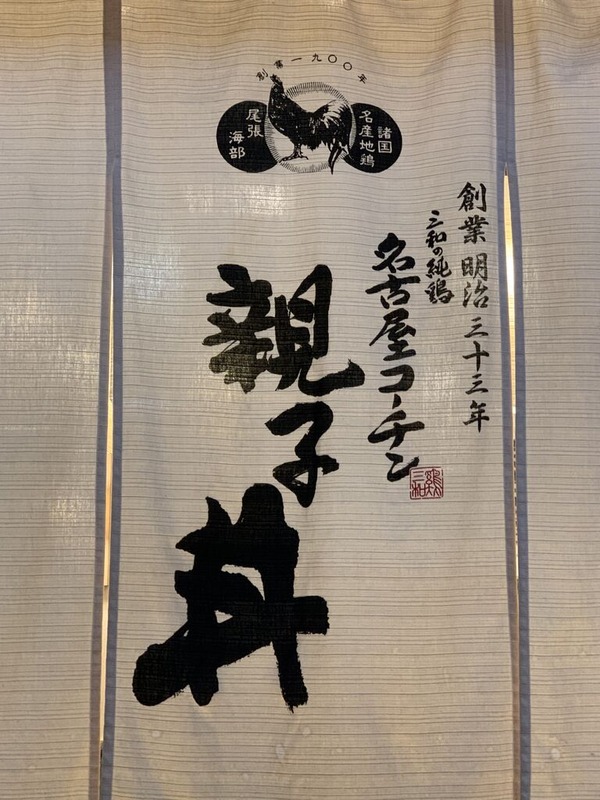 創業一九〇〇年
諸国
名産地鶏
尾張
海部
創業明治三十三年
三和の純鶏
名古屋コーチン
親子丼
鶏三和